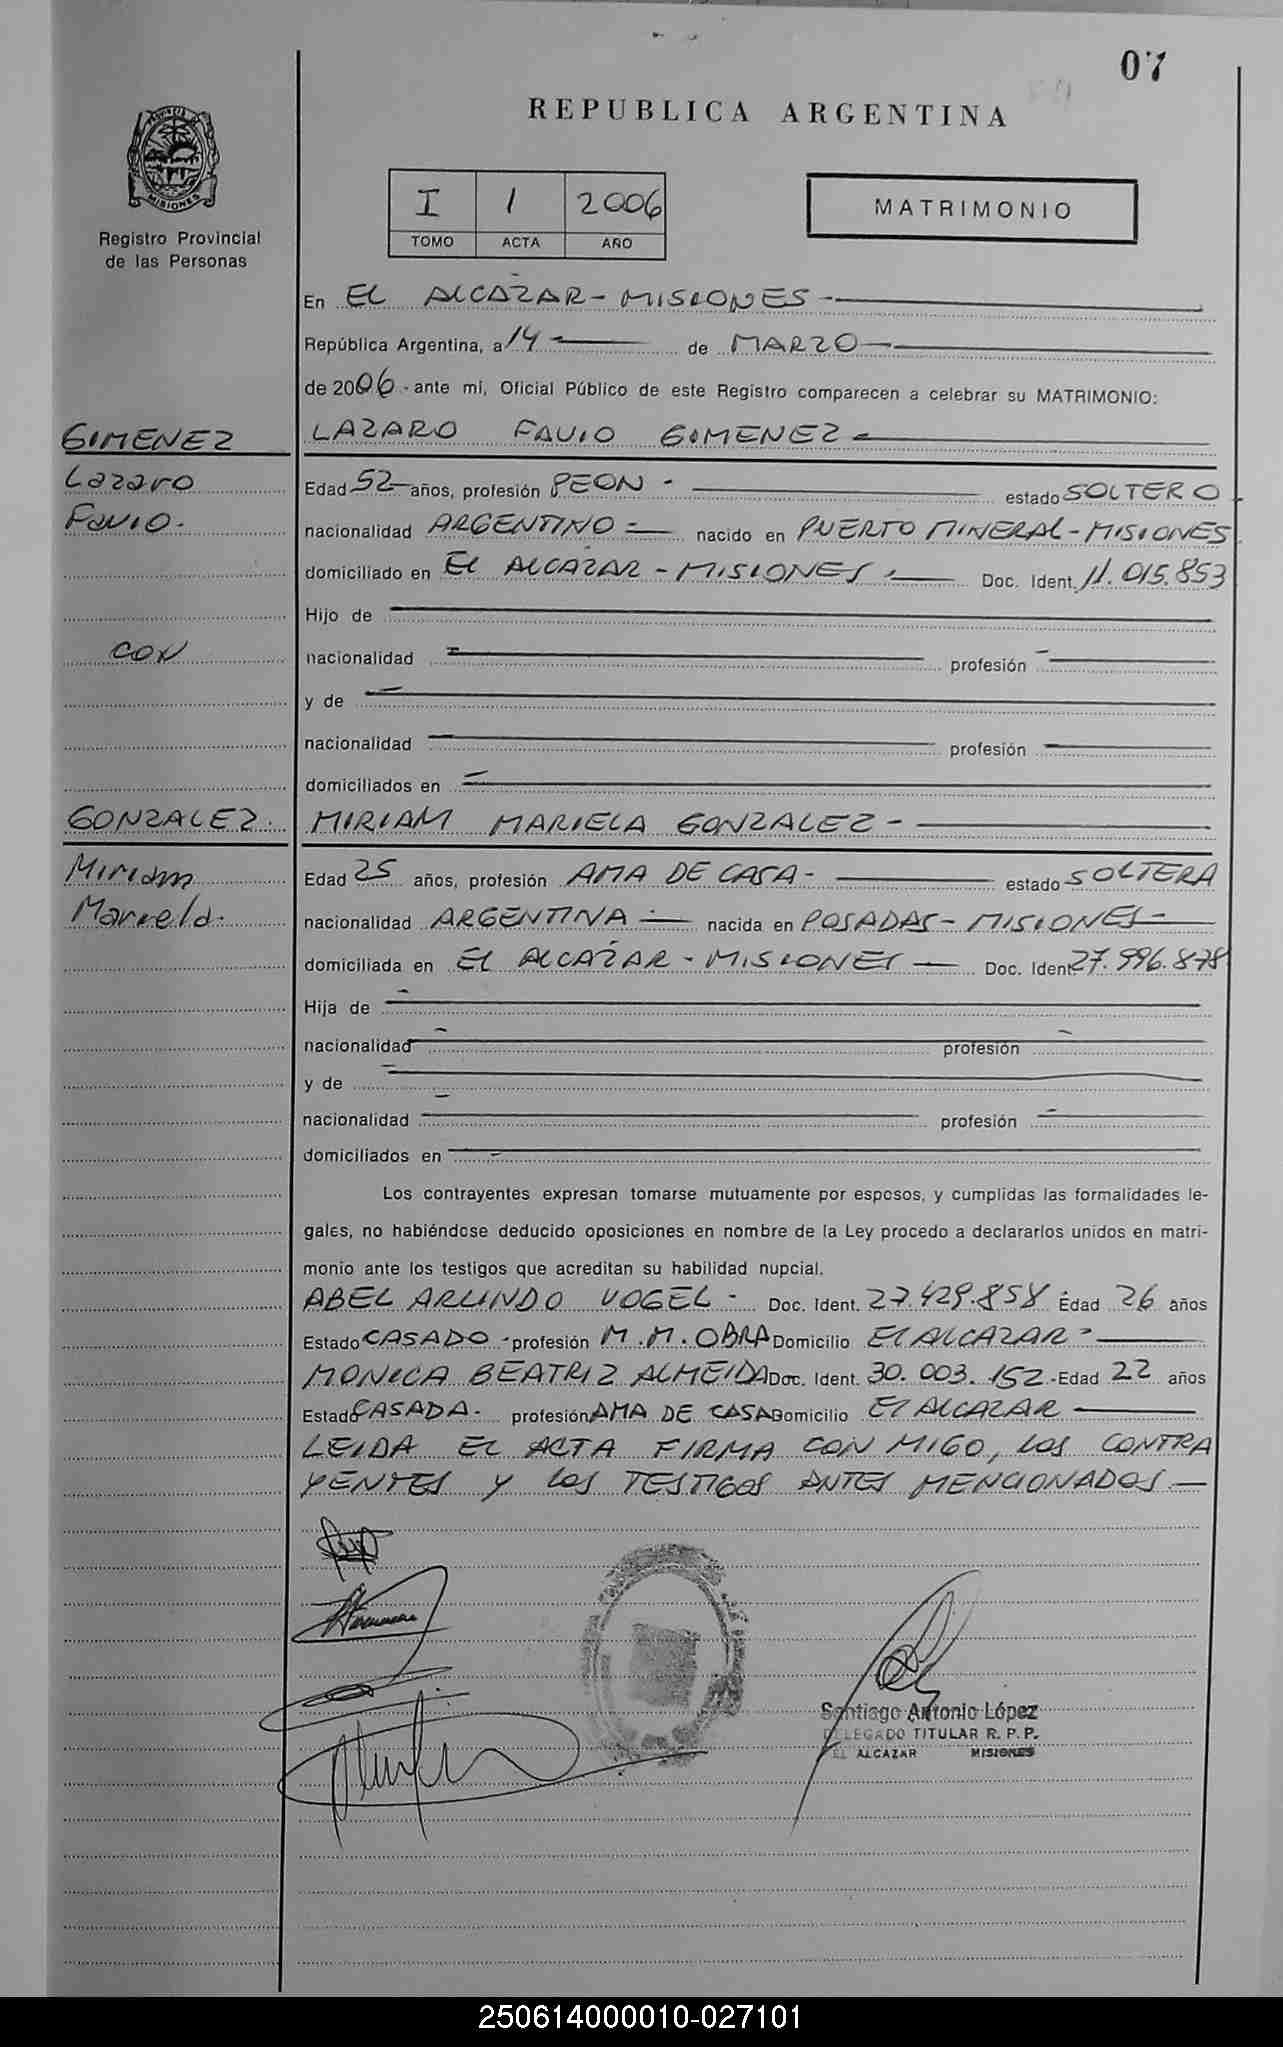 07
REPUBLICA ARGENTINA
MISIONES
Registro Provincial
de las Personas
I 1 2006
TOMO ACTA AÑO
MATRIMONIO
En EL ALCAZAR - MISIONES -
República Argentina, a 14 de MARZO
de 2006 - ante mí, Oficial Público de este Registro comparecen a celebrar su MATRIMONIO:
GIMENEZ LAZARO FAVIO GIMENEZ -
Lazaro Edad 52 años, profesión PEON - estado SOLTERO
Favio. nacionalidad ARGENTINO - nacido en PUERTO MINERAL - MISIONES
domiciliado en EL ALCAZAR - MISIONES - Doc. Ident. 11.015.853
Hijo de
CON nacionalidad profesión
y de
nacionalidad profesión
domiciliados en
GONZALEZ. MIRIAM MARIELA GONZALEZ -
Miriam Edad 25 años, profesión AMA DE CASA - estado SOLTERA
Mariela. nacionalidad ARGENTINA - nacida en POSADAS - MISIONES -
domiciliada en EL ALCAZAR - MISIONES - Doc. Ident 27.996.878
Hija de
nacionalidad profesión
y de
nacionalidad profesión
domiciliados en
Los contrayentes expresan tomarse mutuamente por esposos, y cumplidas las formalidades le-
gales, no habiéndose deducido oposiciones en nombre de la Ley procedo a declararlos unidos en matri-
monio ante los testigos que acreditan su habilidad nupcial.
ABEL ARLINDO VOGEL - Doc. Ident. 27.429.858 Edad 26 años
Estado CASADO - profesión M.M. OBRA Domicilio El ALCAZAR -
MONICA BEATRIZ ALMEIDA Doc. Ident. 30.003.152 - Edad 22 años
Estado CASADA - profesión AMA DE CASA Domicilio El ALCAZAR
LEIDA EL ACTA FIRMA CON MIGO, LOS CONTRA
YENTES Y LOS TESTIGOS ANTES MENCIONADOS -
Santiago Antonio López
DELEGADO TITULAR R. P. P.
EL ALCAZAR MISIONES
250614000010-027101